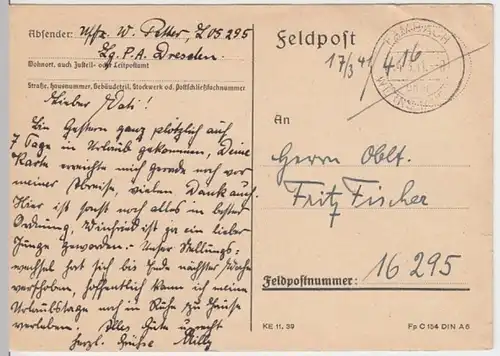 Absender: Uffz. W. Petter, L 05 295
Lg. P.A. Dresden.
Wohnort, auch Zustell- oder Leitpostamt
Straße, Hausnummer, Gebäudeteil, Stockwerk od. Postschließfachnummer
Lieber Vati!
Bin Gestern ganz plötzlich auf
7 Tage in Urlaub gekommen, Deine
Karte erreichte mich gerade noch vor
meiner Abreise, vielen Dank auch.
Hier ist sonst noch alles in bester
Ordnung, Winfried ist ja ein lieber
Junge geworden. Unser Stellungs-
wechsel hat sich bis Ende nächster Woche
verschoben, hoffentlich kann ich meine
Urlaubstage noch in Ruhe zu Hause
verleben. Alles Gute u. recht
herzl. Grüße Willy
Feldpost
17/3 41 4 16
LAMBACH
An
Herrn Oblt.
Fritz Fischer
Feldpostnummer: 16 295
KE 11. 39
Fp C 154 DIN A 6